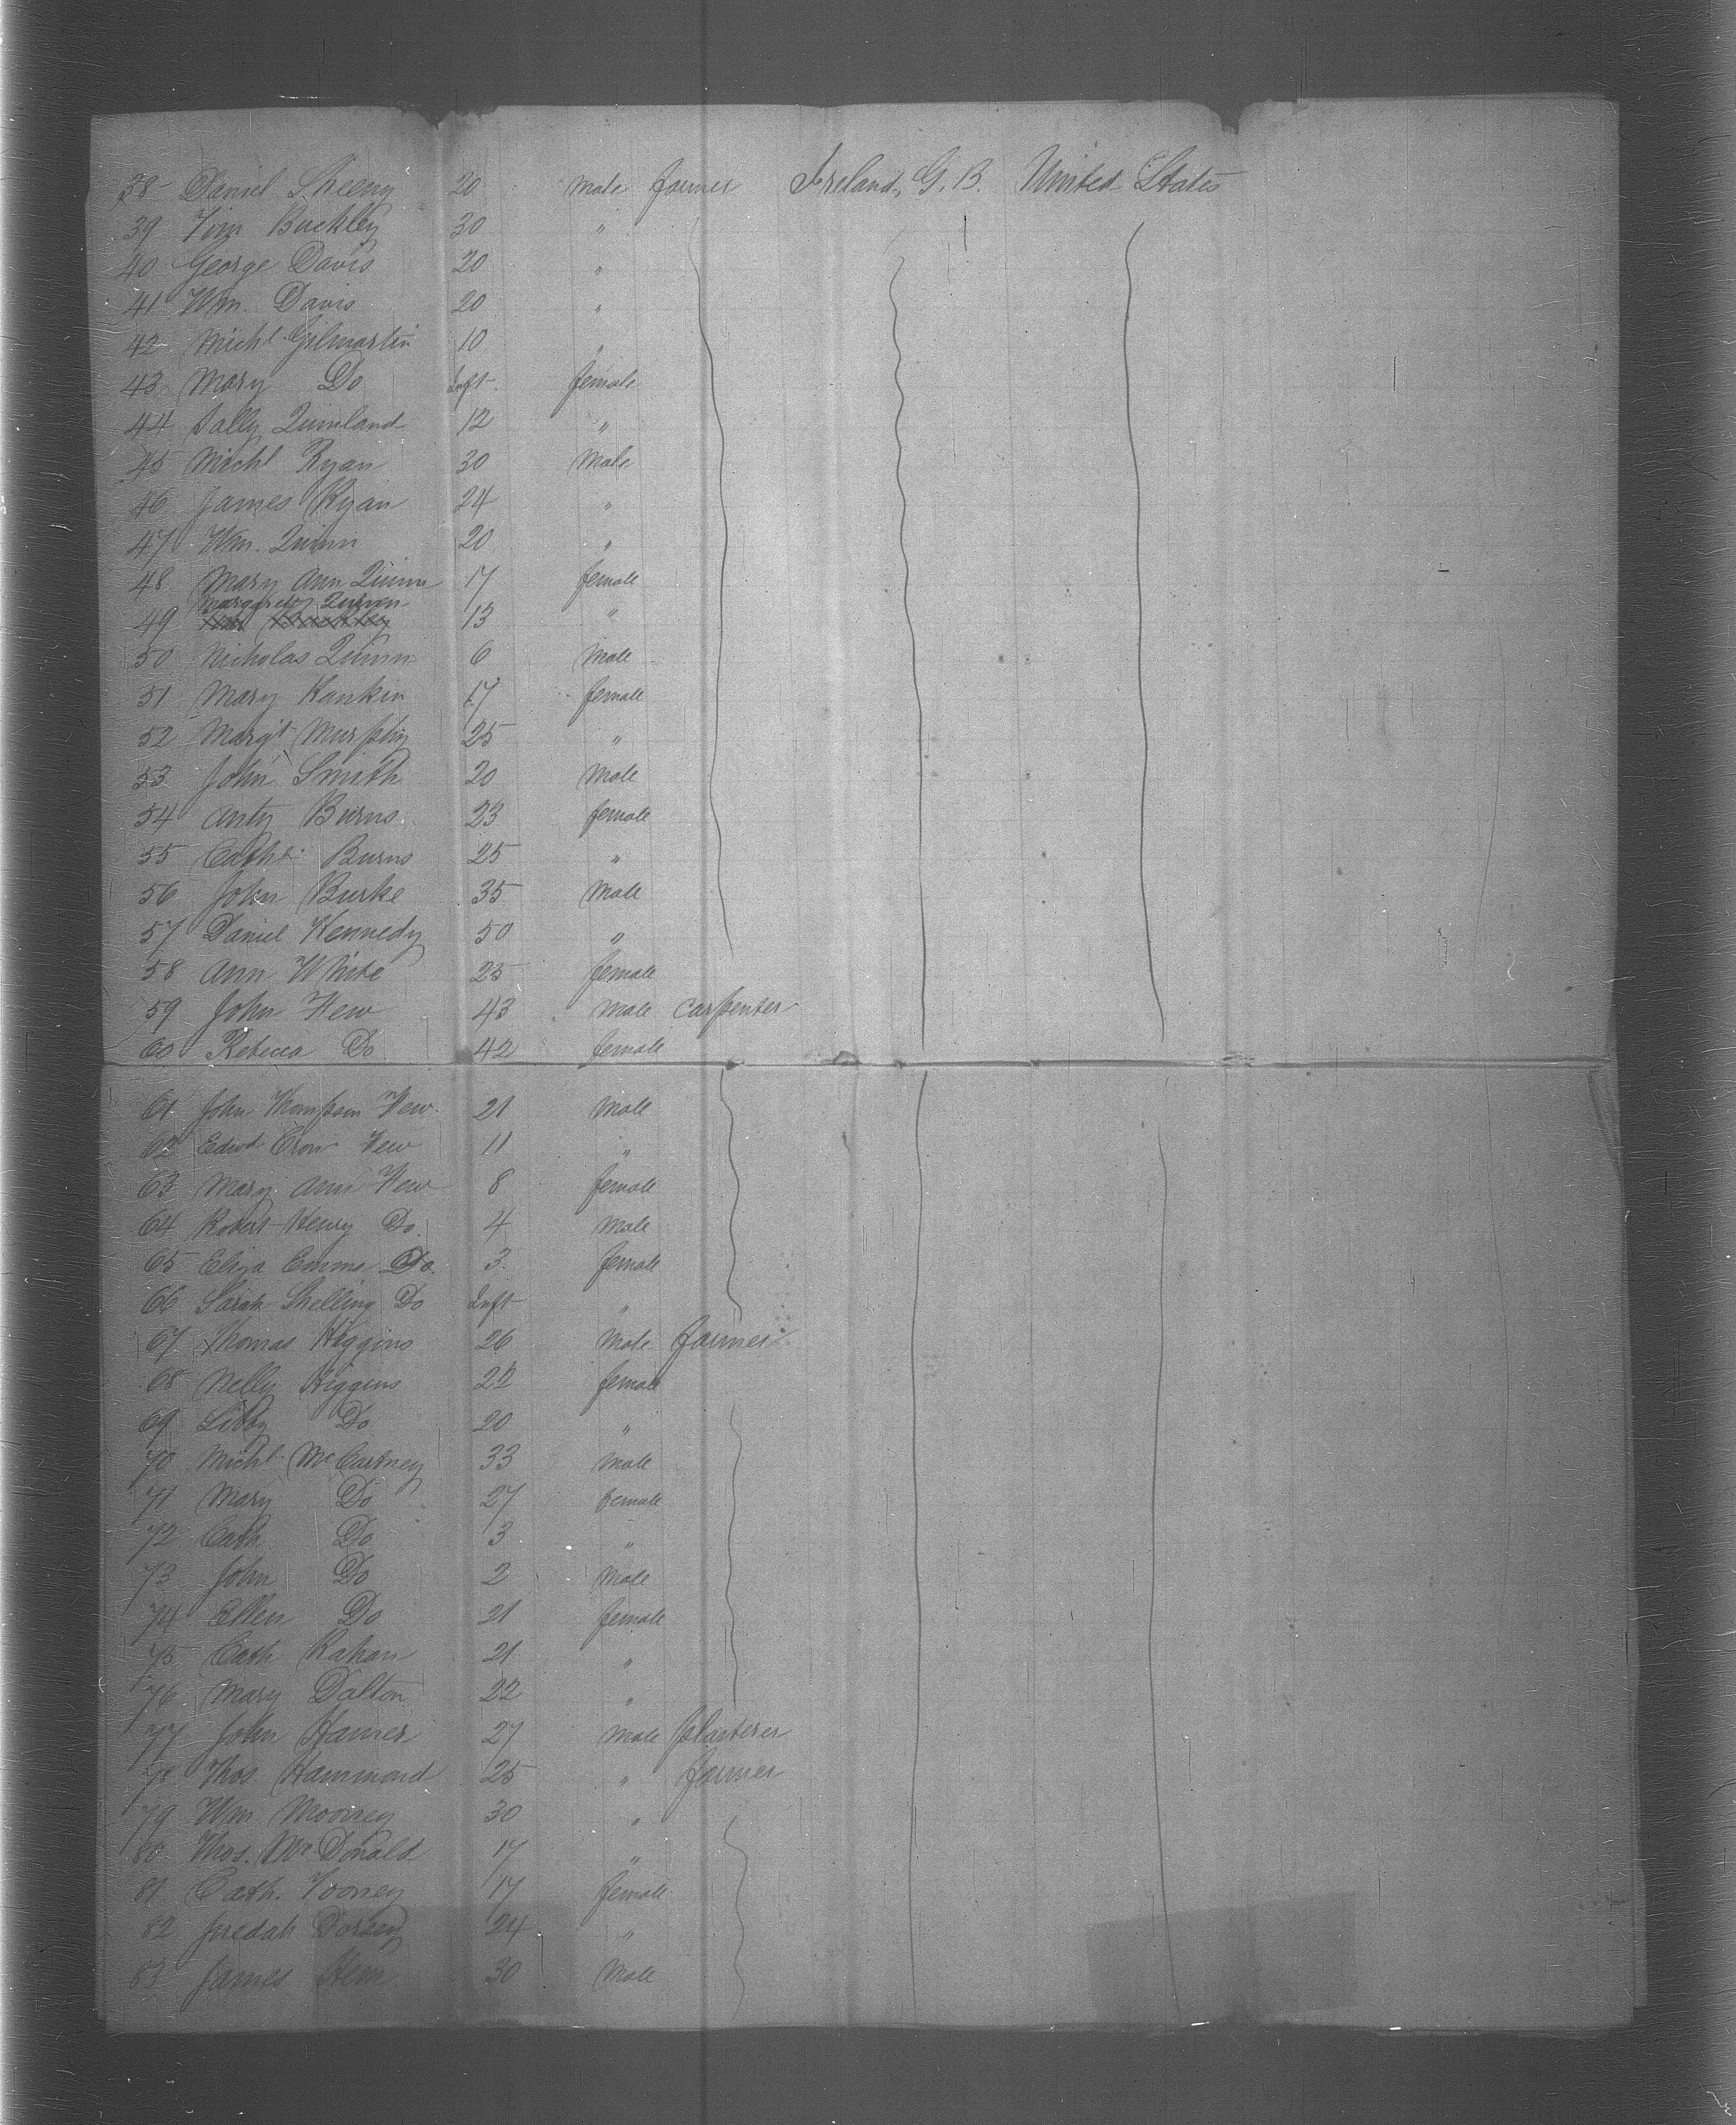 38 Daniel Sheeny 20 male farmer Ireland, G. B. United States
39 Tim Buckley 30 "
40 George Davis 20 "
41 Wm. Davis 20 "
42 Michl Gilmartin 10 "
43 Mary Do Inft. female
44 Sally Quinland 12 "
45 Michl Ryan 30 Male
46 James Ryan 24 "
47 Wm. Quinn 20 "
48 Mary Ann Quinn 17 female
Margaret Quinn
49 13 "
50 Nicholas Quinn 6 Male
51 Mary Rankin 17 female
52 Margt Murphy 25 "
53 John Smith 20 Male
54 Anty Burns 23 female
55 Cathe. Burns 25 "
56 John Burke 35 Male
57 Daniel Kennedy 50 "
58 Ann White 25 female
59 John Few 43 Male Carpenter
60 Rebecca Do 42 female
61 John Thompson Few 21 Male
62 Edwd Crow Few 11 "
63 Mary Ann Few 8 female
64 Robert Henry Do. 4 Male
65 Eliza Emma Do. 3 female
66 Sarah Shelling Do Inft "
67 Thomas Higgins 26 Male farmer
68 Nelly Higgins 22 female
69 Libby Do 20 "
70 Michl. McCartney 33 Male
71 Mary Do 27 female
72 Cath Do 3 "
73 John Do 2 Male
74 Ellen Do 21 female
75 Cath Kahan 21 "
76 Mary Dalton 22 "
77 John Hamer 27 Male plasterer
78 Thos. Hammond 25 " farmer
79 Wm Mooney 30 "
80 Thos. McDonald 17 "
81 Cath. Tooney 17 female
82 Dorsey 24 "
83 James 30 Male